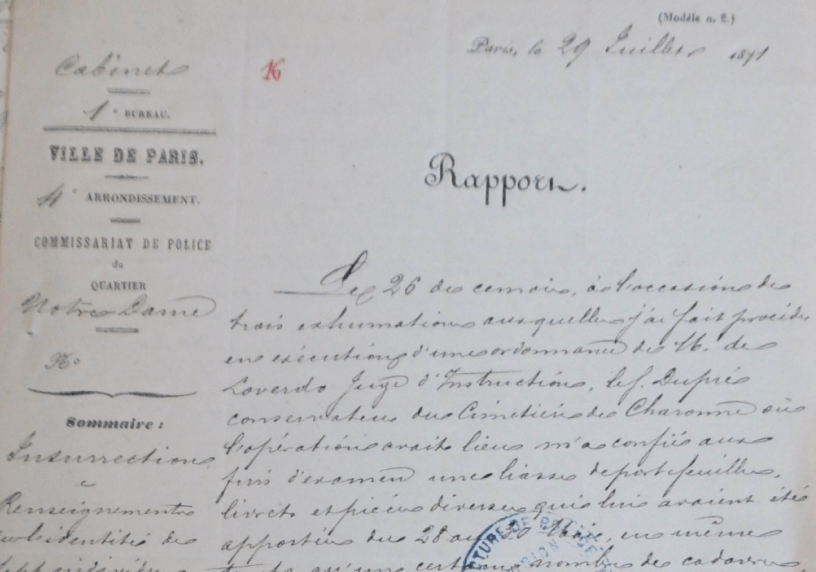 (Modèle n. 2.)
Paris, le 29 Juillet 1871
Cabinet
16
1er BUREAU.
VILLE DE PARIS.
4e ARRONDISSEMENT.
COMMISSARIAT DE POLICE
du
QUARTIER
Notre Dame
No
Sommaire :
Insurrection
Renseignements
identités de
sept individus
Rapport.
Le 26 de ce mois, à l'occasion de
trois exhumations auxquelles j'ai fait procéder
en exécution d'une ordonnance de M. de
Loverdo Juge d'Instruction, le S. Dupré
conservateur du Cimetière de Charonne où
l'opération avait lieu m'a confié aux
fins d'examen une liasse de portefeuilles,
livrets et pièces diverses qui lui avaient été
apportés du 28 au 30 Mai, en même
temps qu'un certain nombre de cadavres,